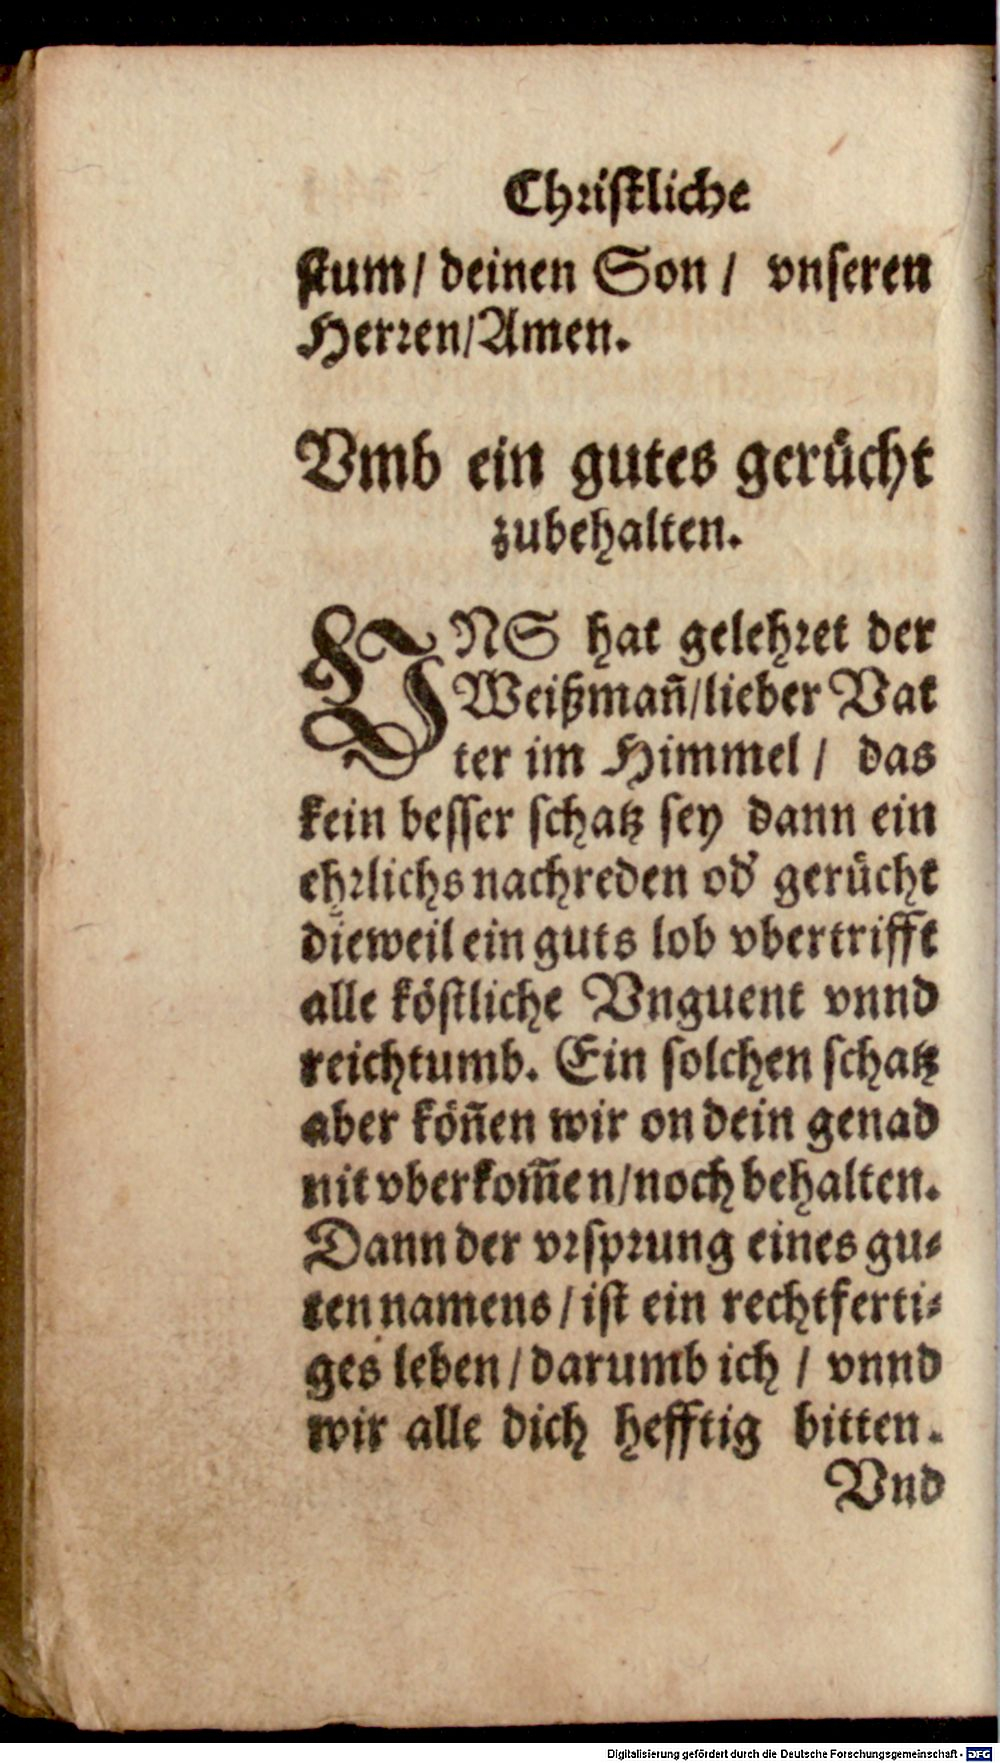 Christliche
stum / deinen Son / vnseren
Herren / Amen.
Vmb ein gutes gerücht
zubehalten.
VNS hat gelehret der
Weißmañ / lieber Vat
ter im Himmel / das
kein besser schatz sey dann ein
ehrlichs nachreden od' gerücht
dieweil ein guts lob vbertrifft
alle köstliche Vnguent vnnd
reichtumb. Ein solchen schatz
aber köñen wir on dein genad
nit vberkom̃en / noch behalten.
Dann der vrsprung eines gu-
ten namens / ist ein rechtferti-
ges leben / darumb ich / vnnd
wir alle dich hefftig bitten.
Vnd
Digitalisierung gefördert durch die Deutsche Forschungsgemeinschaft - DFG